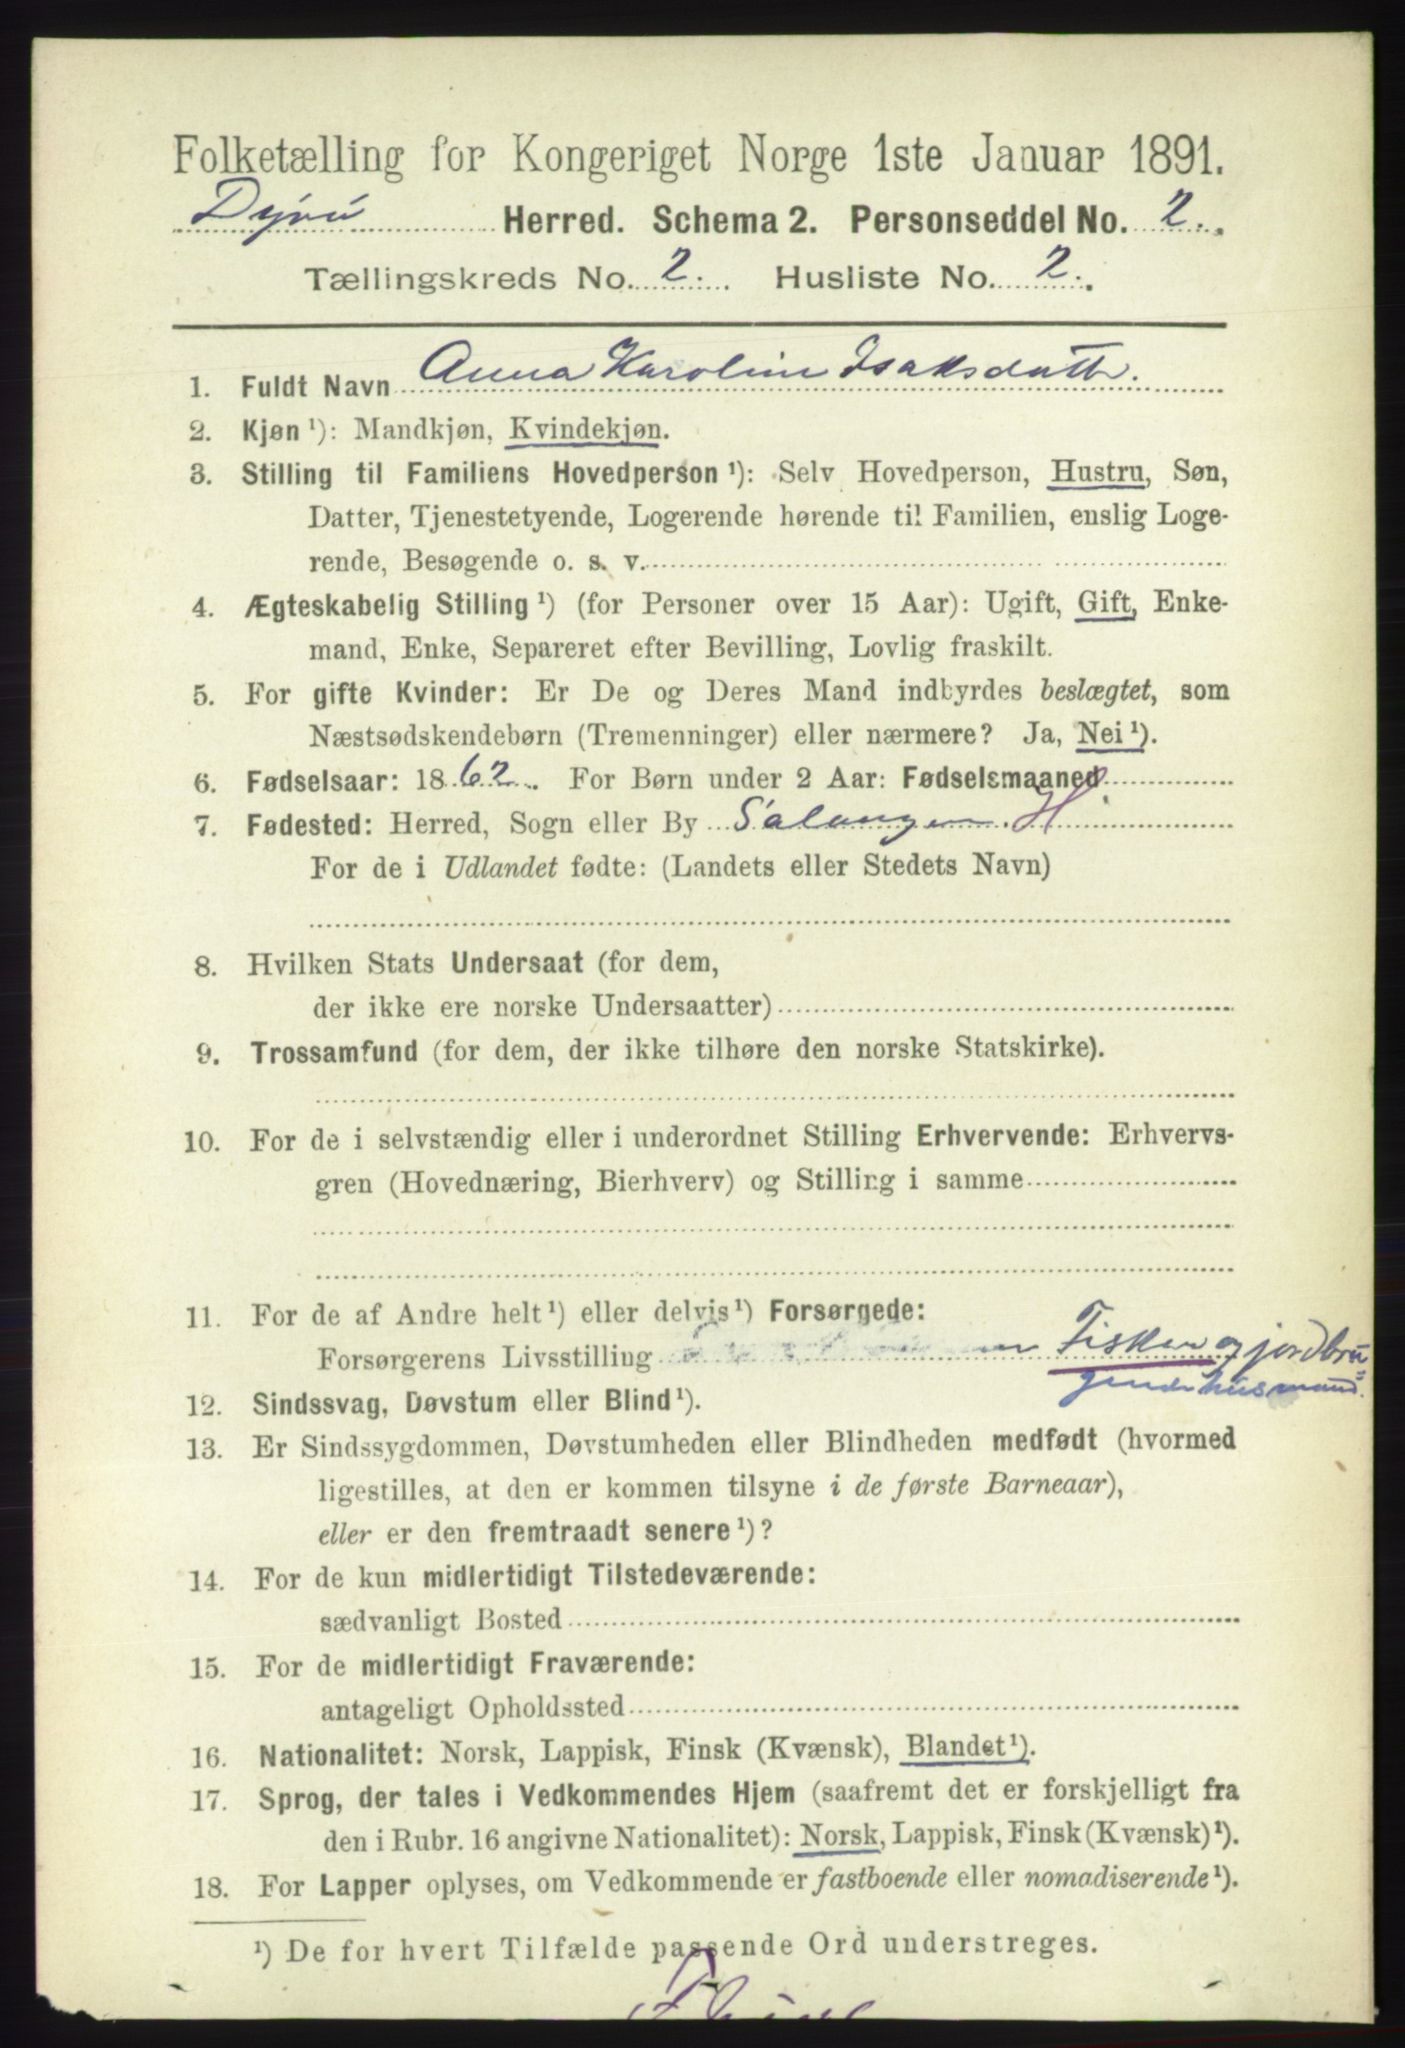 Folketælling for Kongeriget Norge 1ste Januar 1891.
Dyrø Herred. Schema 2. Personseddel No. 2.
Tællingskreds No. 2. Husliste No. 2.
1. Fuldt Navn Anna Karoline Isaksdatter.
2. Kjøn ¹): Mandkjøn, Kvindekjøn.
3. Stilling til Familiens Hovedperson ¹): Selv Hovedperson, Hustru, Søn,
Datter, Tjenestetyende, Logerende hørende til Familien, enslig Loge-
rende, Besøgende o. s. v.
4. Ægteskabelig Stilling ¹) (for Personer over 15 Aar): Ugift, Gift, Enke-
mand, Enke, Separeret efter Bevilling, Lovlig fraskilt.
5. For gifte Kvinder: Er De og Deres Mand indbyrdes beslægtet, som
Næstsødskendebørn (Tremenninger) eller nærmere? Ja, Nei ¹).
6. Fødselsaar: 1862. For Børn under 2 Aar: Fødselsmaaned
7. Fødested: Herred, Sogn eller By Salangen. H
For de i Udlandet fødte: (Landets eller Stedets Navn)
8. Hvilken Stats Undersaat (for dem,
der ikke ere norske Undersaatter)
9. Trossamfund (for dem, der ikke tilhøre den norske Statskirke).
10. For de i selvstændig eller i underordnet Stilling Erhvervende: Erhvervs-
gren (Hovednæring, Bierhverv) og Stilling i samme
11. For de af Andre helt ¹) eller delvis ¹) Forsørgede:
Forsørgerens Livsstilling Fisker og jordbru=
gende husmand.
12. Sindssvag, Døvstum eller Blind ¹).
13. Er Sindssygdommen, Døvstumheden eller Blindheden medfødt (hvormed
ligestilles, at den er kommen tilsyne i de første Barneaar),
eller er den fremtraadt senere ¹)?
14. For de kun midlertidigt Tilstedeværende:
sædvanligt Bosted
15. For de midlertidigt Fraværende:
antageligt Opholdssted
16. Nationalitet: Norsk, Lappisk, Finsk (Kvænsk), Blandet ¹).
17. Sprog, der tales i Vedkommendes Hjem (saafremt det er forskjelligt fra
den i Rubr. 16 angivne Nationalitet): Norsk, Lappisk, Finsk (Kvænsk) ¹).
18. For Lapper oplyses, om Vedkommende er fastboende eller nomadiserende ¹).
¹) De for hvert Tilfælde passende Ord understreges.